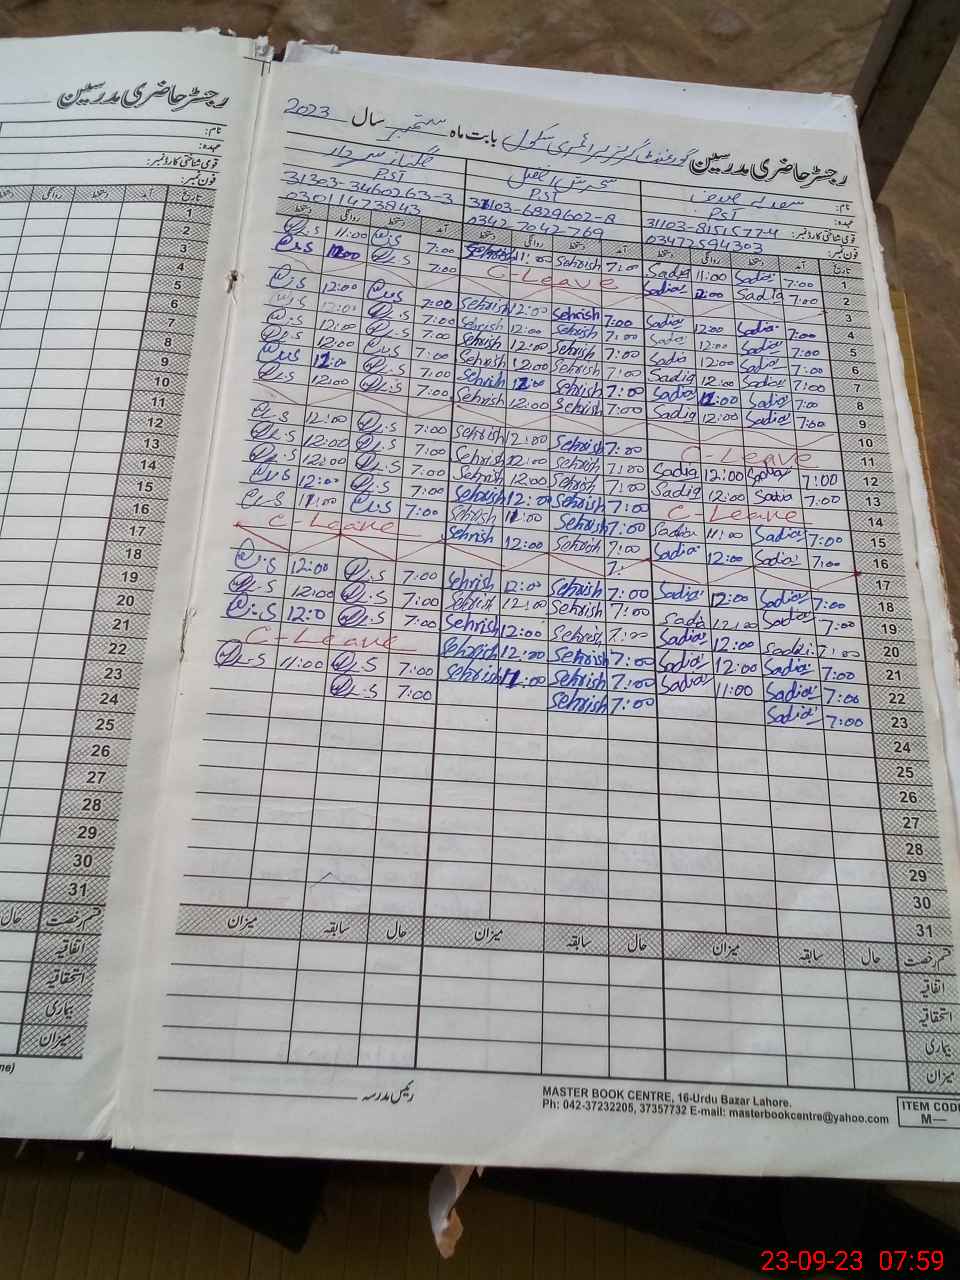 رجسٹر حاضری مدرسین
نام:
عہدہ:
قومی شناختی کارڈ نمبر:
فون نمبر:
تاریخ آمد دستخط روانگی دستخط
1
2
3
4
5
6
7
8
9
10
11
12
13
14
15
16
17
18
19
20
21
22
23
24
25
26
27
28
29
30
31
حال
قسم رخصت
اتفاقیہ
استحقاقیہ
بیماری
میزان
رجسٹر حاضری مدرسین گورنمنٹ گرلز پرائمری سکول بابت ماہ ستمبر سال 2023
نام:
عہدہ: PST PST PST
قومی شناختی کارڈ نمبر: 31103-8151577-4 31103-6829602-8 31303-3460263-3
فون نمبر: 03472594303 0342-7042-769 030114723843
تاریخ آمد دستخط روانگی دستخط آمد دستخط روانگی دستخط آمد دستخط روانگی دستخط
1 7:00 Sadia 11:00 Sadia 7:00 Sehrish 11:00 Sehrish 7:00 11:00
2 7:00 Sadia 12:00 Sadia C-Leave 7:00
3
4 7:00 Sadia 12:00 Sadia 7:00 Sehrish 12:00 Sehrish 7:00 12:00
5 7:00 Sadia 12:00 Sadia 7:00 Sehrish 12:00 Sehrish 7:00 12:00
6 7:00 Sadia 12:00 Sadia 7:00 Sehrish 12:00 Sehrish 7:00 12:00
7 7:00 Sadia 12:00 Sadia 7:00 Sehrish 12:00 Sehrish 7:00 12:00
8 7:00 Sadia 12:00 Sadia 7:00 Sehrish 12:00 Sehrish 7:00
9 7:00 Sadia 12:00 Sadia 7:00 Sehrish 12:00 Sehrish 7:00 12:00
10
11 C-Leave 7:00 Sehrish 12:00 Sehrish 7:00 12:00
12 7:00 Sadia 12:00 Sadia 7:00 Sehrish 12:00 Sehrish 7:00 12:00
13 7:00 Sadia 12:00 Sadia 7:00 Sehrish 12:00 Sehrish 7:00 12:00
14 C-Leave 7:00 Sehrish 12:00 Sehrish 7:00 12:00
15 7:00 Sadia 11:00 Sadia 7:00 Sehrish 11:00 Sehrish 7:00 11:00
16 7:00 Sadia 12:00 Sadia 7:00 Sehrish 12:00 Sehrish C-Leave
17
18 7:00 Sadia 12:00 Sadia 7:00 Sehrish 12:00 Sehrish 7:00 12:00
19 7:00 Sadia 12:00 Sadia 7:00 Sehrish 12:00 Sehrish 7:00 12:00
20 7:00 Sadia 12:00 Sadia 7:00 Sehrish 12:00 Sehrish 7:00 12:0
21 7:00 Sadia 12:00 Sadia 7:00 Sehrish 12:00 Sehrish C-Leave
22 7:00 Sadia 11:00 Sadia 7:00 Sehrish 11:00 Sehrish 7:00 11:00
23 7:00 Sadia 7:00 Sehrish 7:00
24
25
26
27
28
29
30
31
قسم رخصت حال سابقہ میزان حال سابقہ میزان حال سابقہ میزان
اتفاقیہ
استحقاقیہ
بیماری
میزان
رئیس مدرسہ
MASTER BOOK CENTRE, 16-Urdu Bazar Lahore.
Ph: 042-37232205, 37357732 E-mail: masterbookcentre@yahoo.com
ITEM CODE
M—
23-09-23 07:59